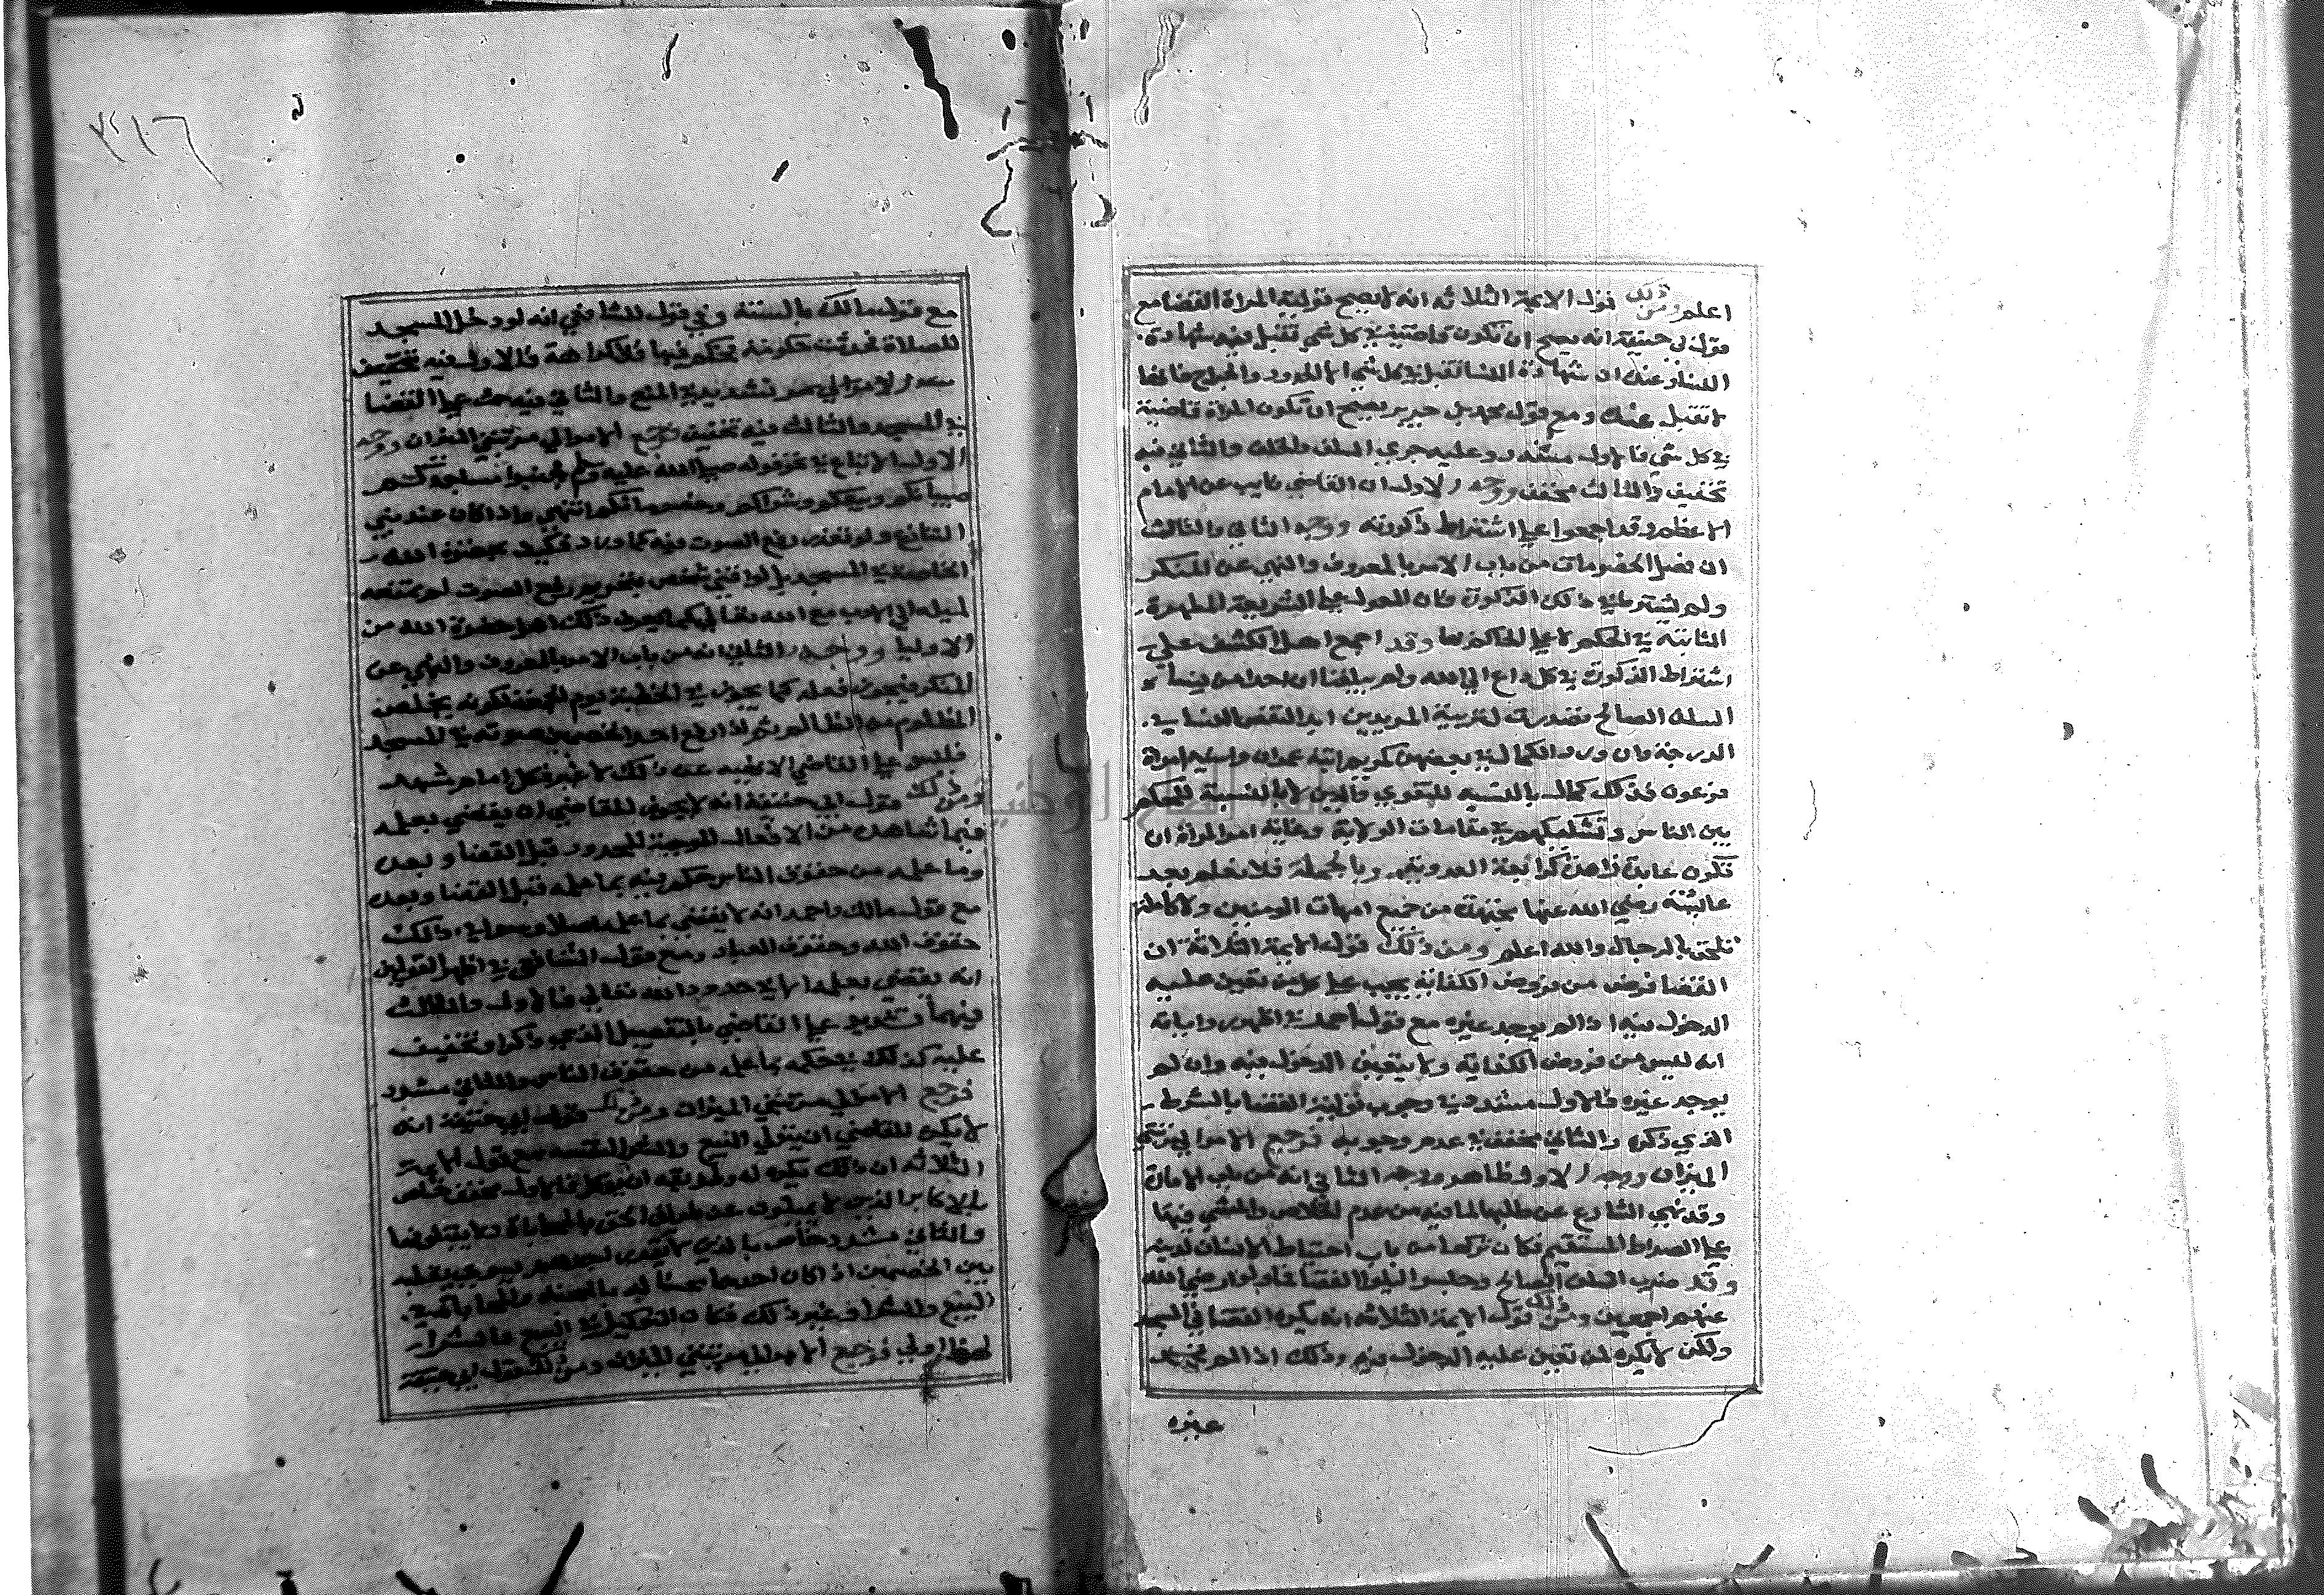 اعلم ومن ذلك قول الايمة الثلاثة انه لا يصح تولية المراة القضا مع
قول ابي حنيفة انه يصح ان تكون قاضية في كل شي تقبل فيه شهادة
النسا وعنده ان شهادة النسا تقبل في كل شي الا الحدود والجراح فانها
لا تقبل عنده ومع قول محمد بن جرير يصح ان تكون المراة قاضية
في كل شي فالاول مشدد وعليه جري السلف والخلف والثاني فيه
تخفيف والثالث مخفف ووجه الاول ان القاضي نايب عن الامام
الاعظم وقد اجمعوا علي اشتراط ذكورته ووجه الثاني والثالث
ان فصل الخصومات من باب الامر بالمعروف والنهي عن المنكر
ولم يشترطوا في ذلك الذكورة فان المعول علي الشريعة المطهرة
الثابتة في الحكم لا علي الحاكم بها وقد اجمع اهل الكشف علي
اشتراط الذكورة في كل داع الي الله ولم يبلغنا ان احدا من نسا
السلف الصالح تصدرت لتربية المريدين ابدا لنقص النسا في
الدرجة وان ورد الكمال في بعضهن كمريم ابنة عمران واسية امراة
فرعون فذلك كمال بالنسبة للتقوي والدين لا بالنسبة للحكم
بين الناس وتسليكهم في مقامات الولاية وغاية امر المراة ان
تكون عابدة زاهدة كرابعة العدوية وبالجملة فلا نعلم بعد
عايشة رضي الله عنها مجتهدة من جميع امهات المومنين ولا كاملة
تلحق بالرجال والله اعلم ومن ذلك قول الايمة الثلاثة ان
القضا فرض من فروض الكفاية يجب علي من تعين عليه
الدخول فيه اذا لم يوجد غيره مع قول احمد في اظهر رواياته
انه ليس من فروض الكفاية ولا يتعين الدخول فيه وان لم
يوجد غيره فالاول مشدد في وجوب تولية القضا بالشرط
الذي ذكره والثاني مخفف في عدم وجوبه فرجع الامر الي مرتبتي
الميزان ووجه الاول ظاهر ووجه الثاني انه من باب الامانة
وقد نهي الشارع عن طلبها لما فيه من عدم الخلاص والمشي فيها
علي الصراط المستقيم فكان تركها من باب احتياط الانسان لدينه
وقد ضرب السلف الصالح وحبسوا ليلوا القضا فما ولوا رضي الله
عنهم اجمعين ومن ذلك قول الايمة الثلاثة انه يكره القضا في المسجد
ولكن لا يكره لمن تعين عليه الدخول فيه وذلك اذا لم يوجد
غيره
٣١٦
مع قول مالك بالسنة وفي قول للشافعي انه لو دخل المسجد
للصلاة فحدثت حكومة فحكم فيها فلا كراهة فالاول فيه تخفيف
والثاني فيه حث علي القضا
في المسجد والثالث فيه تخفيف فرجع الامر الي مرتبتي الميزان ووجه
الاول الاتباع في نحو قوله صلي الله عليه وسلم جنبوا مساجدكم
صبيانكم وبيعكم وشراكم وخصوماتكم انتهي واذا كان عند نبي
التنازع ولو تعذر رفع الصوت فيه كما ورد فكيف بحضرة الله
الخاصة في المسجد
لميله الي الادب مع الله تعالي كما يعرف ذلك اهل حضرة الله من
الاوليا ووجه الثاني انه من باب الامر بالمعروف والنهي عن
المنكر فيجوز فعله كما يجوز في الخطبة يوم الجمعة لكونه يخلص
المظلوم من الظالم ثم اذا رفع احد الخصمين صوته في المسجد
فليس علي القاضي الا نهيه عن ذلك لا غير فكل امام مشهد
ومن ذلك قول ابي حنيفة انه لا يجوز للقاضي ان يقضي بعلمه
فيما شاهده من الافعال الموجبة للحدود قبل القضا وبعده
وما علمه من حقوق الناس حكم فيه بما علمه قبل القضا وبعده
مع قول مالك واحمد انه لا يقضي بما علمه اصلا سوا في ذلك
حقوق الله وحقوق العباد ومع قول الشافعي في اظهر القولين
انه يقضي بعلمه الا في حدود الله تعالي فالاول والثالث
فيهما تشديد علي القاضي بالتفصيل الذي ذكرا وتخفيف
عليه كذلك في حكمه بما علمه من حقوق الناس والثاني مشدد
فرجع الامر الي مرتبتي الميزان ومن ذلك قول ابي حنيفة انه
لا يكره للقاضي ان يتولي البيع والشرا بنفسه مع قول الايمة
الثلاثة ان ذلك يكره له وطريقه ان يوكل فالاول مخفف خاص
بالاكابر الذين لا يميلون عن طريق الحق بالمحاباة
والثاني مشدد خاص بالذي لا يقدر
بين الخصمين اذا كان احدهما محسنا اليه
البيع والشرا وغير ذلك فكان التوكيل في البيع والشرا
اولي فرجع الامر الي مرتبتي الميزان ومن ذلك قول ابي حنيفة